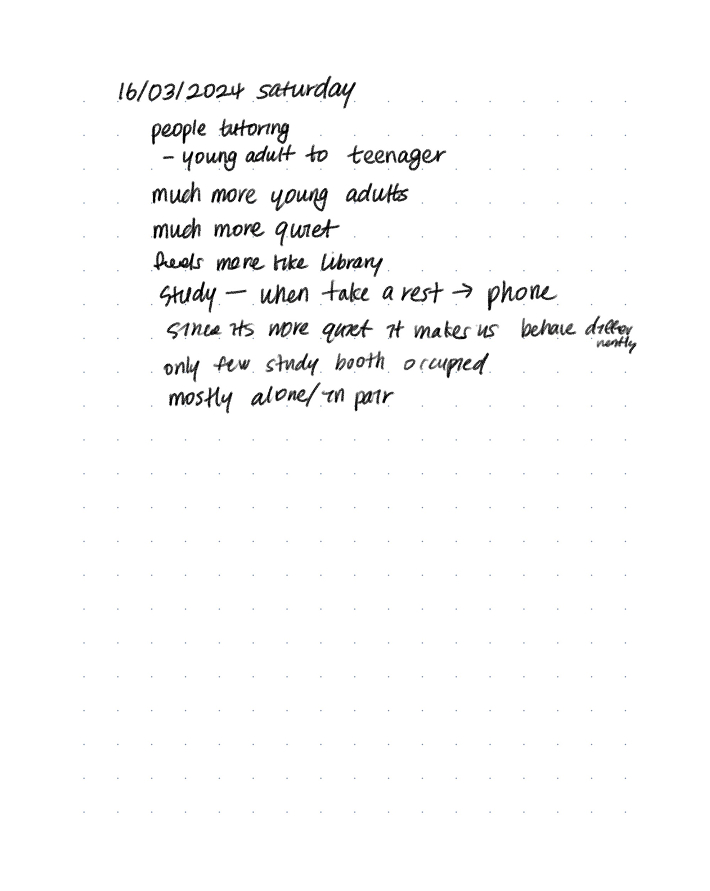 16/03/2024 saturday
people tutoring
- young adult to teenager
much more young adults
much more quiet
feels more like library
study — when take a rest → phone
since its more quiet it makes us behave differ
nently
only few study booth occupied
mostly alone/in pair